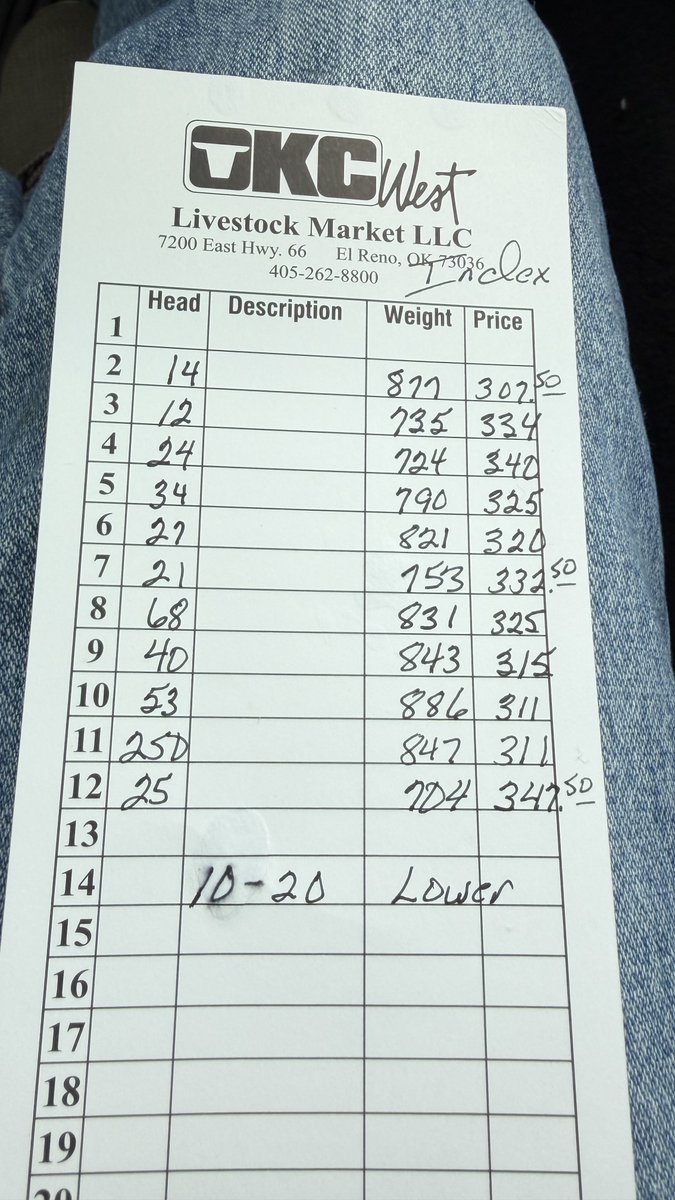 OKC West
Livestock Market LLC
7200 East Hwy. 66 El Reno, OK 73036
405-262-8800
Index
1 Head Description Weight Price
2 14 877 307.50
3 12 735 334
4 24 724 340
5 34 790 325
6 27 821 320
7 21 753 332.50
8 68 831 325
9 40 843 315
10 53 886 311
11 250 847 311
12 25 704 347.50
13
14 10-20 Lower
15
16
17
18
19
20